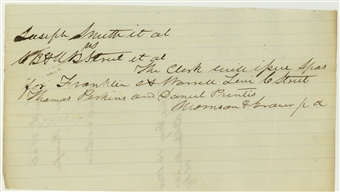 Joseph Smith et al
vs
Street et al
The Clerk will issue Spas
for Franklin A Worrell Levi C Street
Thomas Perkins and Daniel Prentis
Morrison & p d